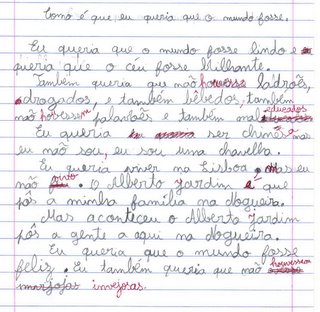 Como é que eu queria que o mundo fosse.
Eu queria que o mundo fosse lindo e
queria que o céu fosse brilhante.
Também queria que não houvesse ladrões,
drogados, e também bêbedos, também
não houvessem falarões e também mal educados
Eu queria ser chinesa
mas eu não sou, eu sou uma chavelha.
Eu queria viver na Lisboa, mas eu
não posso. O Alberto Jardim é que
pôs a minha família na Nogueira.
Mas aconteceu o Alberto Jardim
pôs a gente a aqui na Nogueira.
Eu queria que o mundo fosse
feliz. Eu também queria que não houvessem
invejosas.